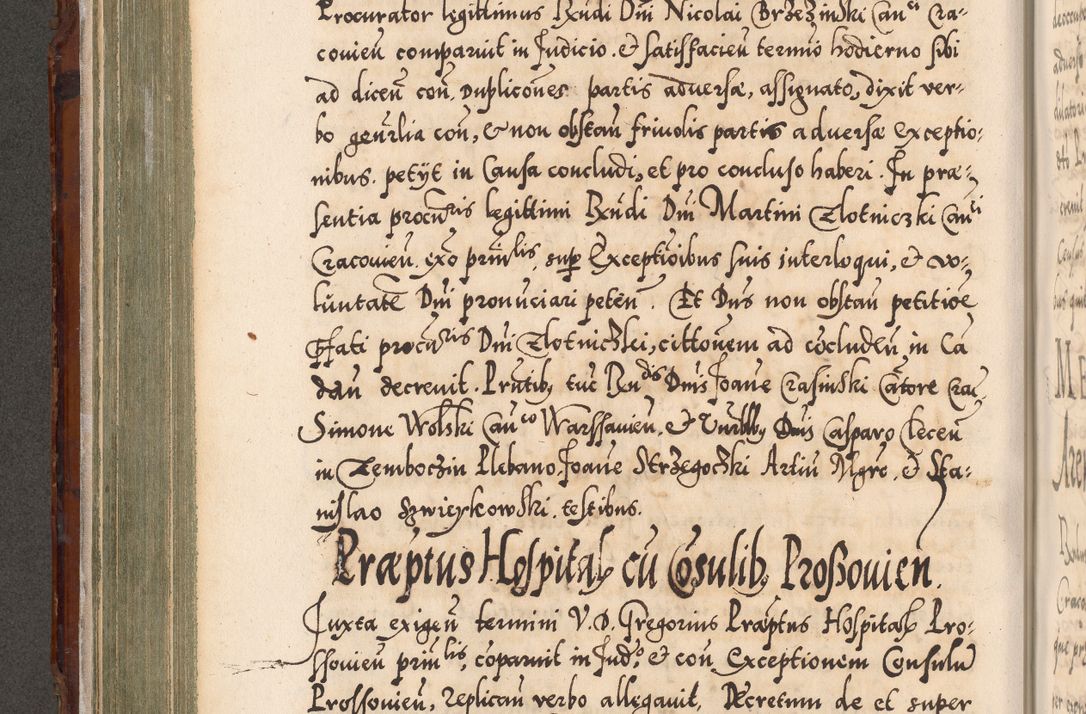 Procurator legittimus Rndi Dni Nicolai Brzeziński Canci Cra-
couien comparuit in Judicio. & satisfacien termio hodierno sibi
ad dicen con duplicones partis aduersæ, assignato, dixit ver-
bo genrlia con, & non obstan friuolis partis aduersæ exceptio-
nibus. petÿt in Causa concludi, et pro concluso haberi. In præ-
sentia procuris legittimi Rndi Dni Martini Zlotniczki Canci
Cracouien. exo prinlis, sup Exceptioibus suis interloqui, & vo-
luntate Dni pronuciari peten. Et Dns non obstan petitioe
pffati procuris Dni Zlotniczkei, cittonem ad cocluden in Ca
dan decreuit. Prntib, tuc Rndis Dnis Joane Crasinski Catore Cra,
Simone Wolski Canco Warssauien, & Casparo Cecen
in Zemboczin Plebano, Joane Strzegoczki Artiu Mgro, & Sta-
nislao Szwieykowski. testibus.
Præptus Hospital cu Cosulib, Proßouien.
Juxta exigen termini V. D. Gregorius Præptus Hospital Pro-
ssouien prinlis, coparuit in Judo, & con Exceptionem Consulu
Prossouien, replican verbo allegauit, Decretum de et super